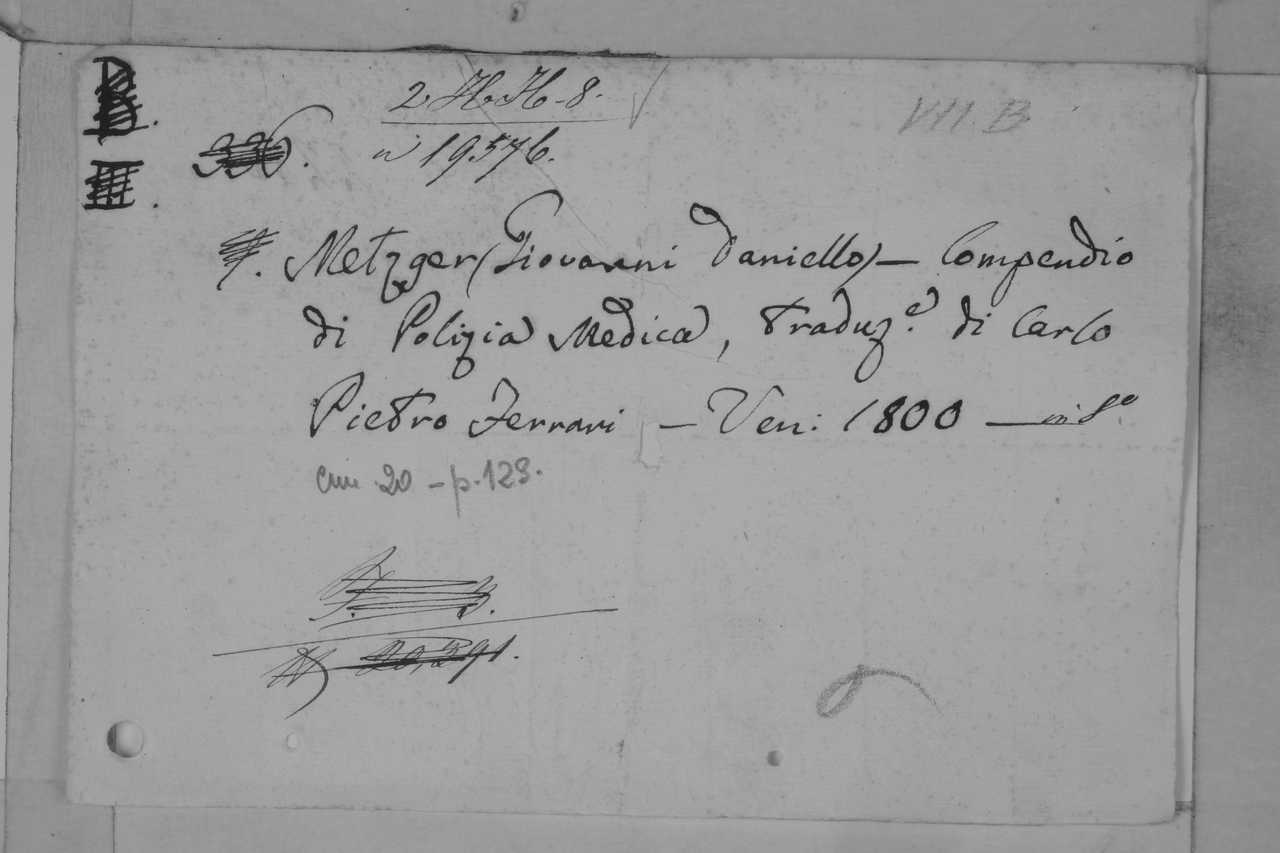 B.
2 H H-8.
VII. B
336.
n 19576.
III.
Metzger (Giovanni Daniello) — Compendio
di Polizia Medica, Traduz.e di Carlo
Pietro Ferrari — Ven: 1800 — in 8.o
cm. 20 - p. 123.
20,391.